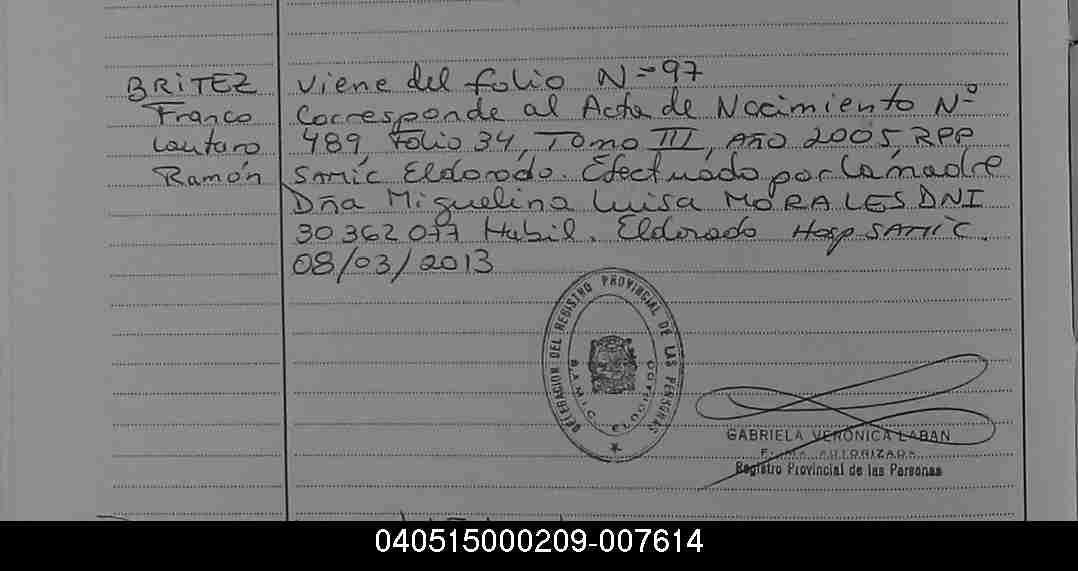 BRITEZ
Franco
Lautaro
Ramón
Viene del folio Nº 97
Corresponde al Acta de Nacimiento Nº
489, Folio 34, Tomo III, Año 2005, RPP
SAMIC Eldorado. Efectuado por la madre
Dña Miguelina Luisa MORALES DNI
30362077 Habil. Eldorado Hosp SAMIC.
08/03/2013
DELEGACION DEL REGISTRO PROVINCIAL DE LAS PERSONAS
SAMIC ELDORADO
GABRIELA VERONICA LABAN
FIRMA AUTORIZADA
Registro Provincial de las Personas
040515000209-007614